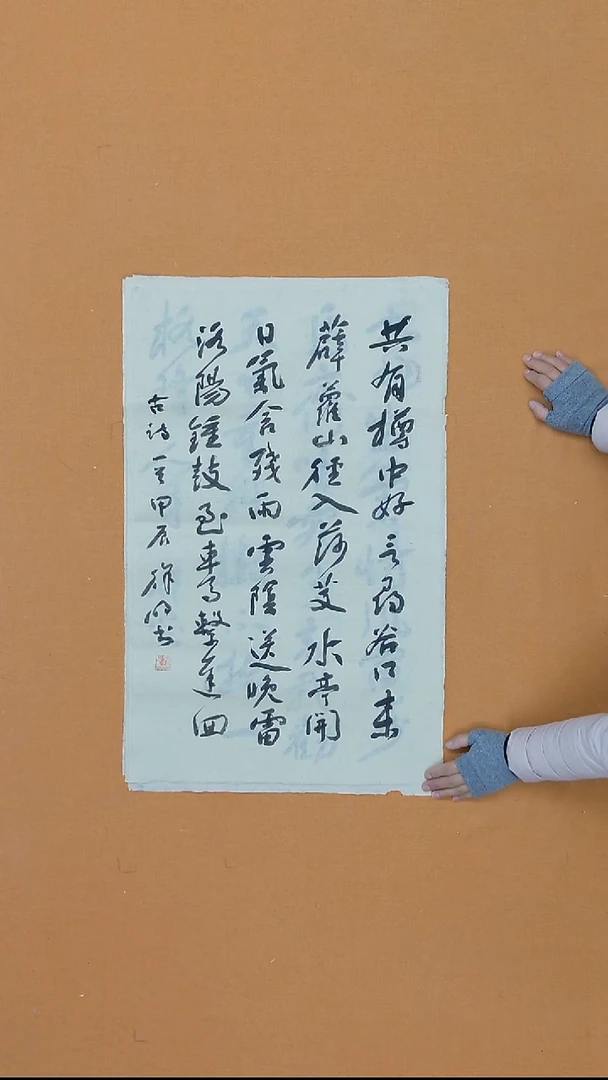 共有樽中好言尋谷口来
薜蘿山徑入荷芰水亭開
日氣含殘雨雲陰送晚雷
洛陽鍾鼓至車馬繫遲回
古詩一首甲辰徐